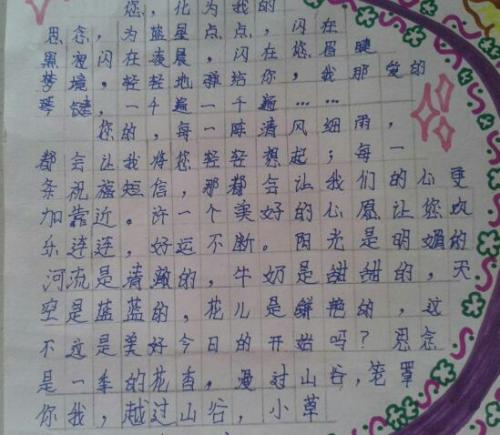 您，化为我的
思念，为蓝星点点，闪在
黑夜闪在凌晨，闪在您眉睫
梦境，轻轻地弹给你，我那爱的
琴键，一千遍一千遍……
您的，每一阵清风细雨，
都会让我将您轻轻想起；每一
条祝福短信，那都会让我们的心更
加靠近。许一个美好的心愿让您欢
乐连连，好运不断。阳光是明媚的
河流是清澈的，牛奶是甜甜的，天
空是蓝蓝的，花儿是鲜艳的，这
不这是美好今日的开始吗？思念
是一季的花香，漫过山谷，笼罩
你我，越过山谷，小草